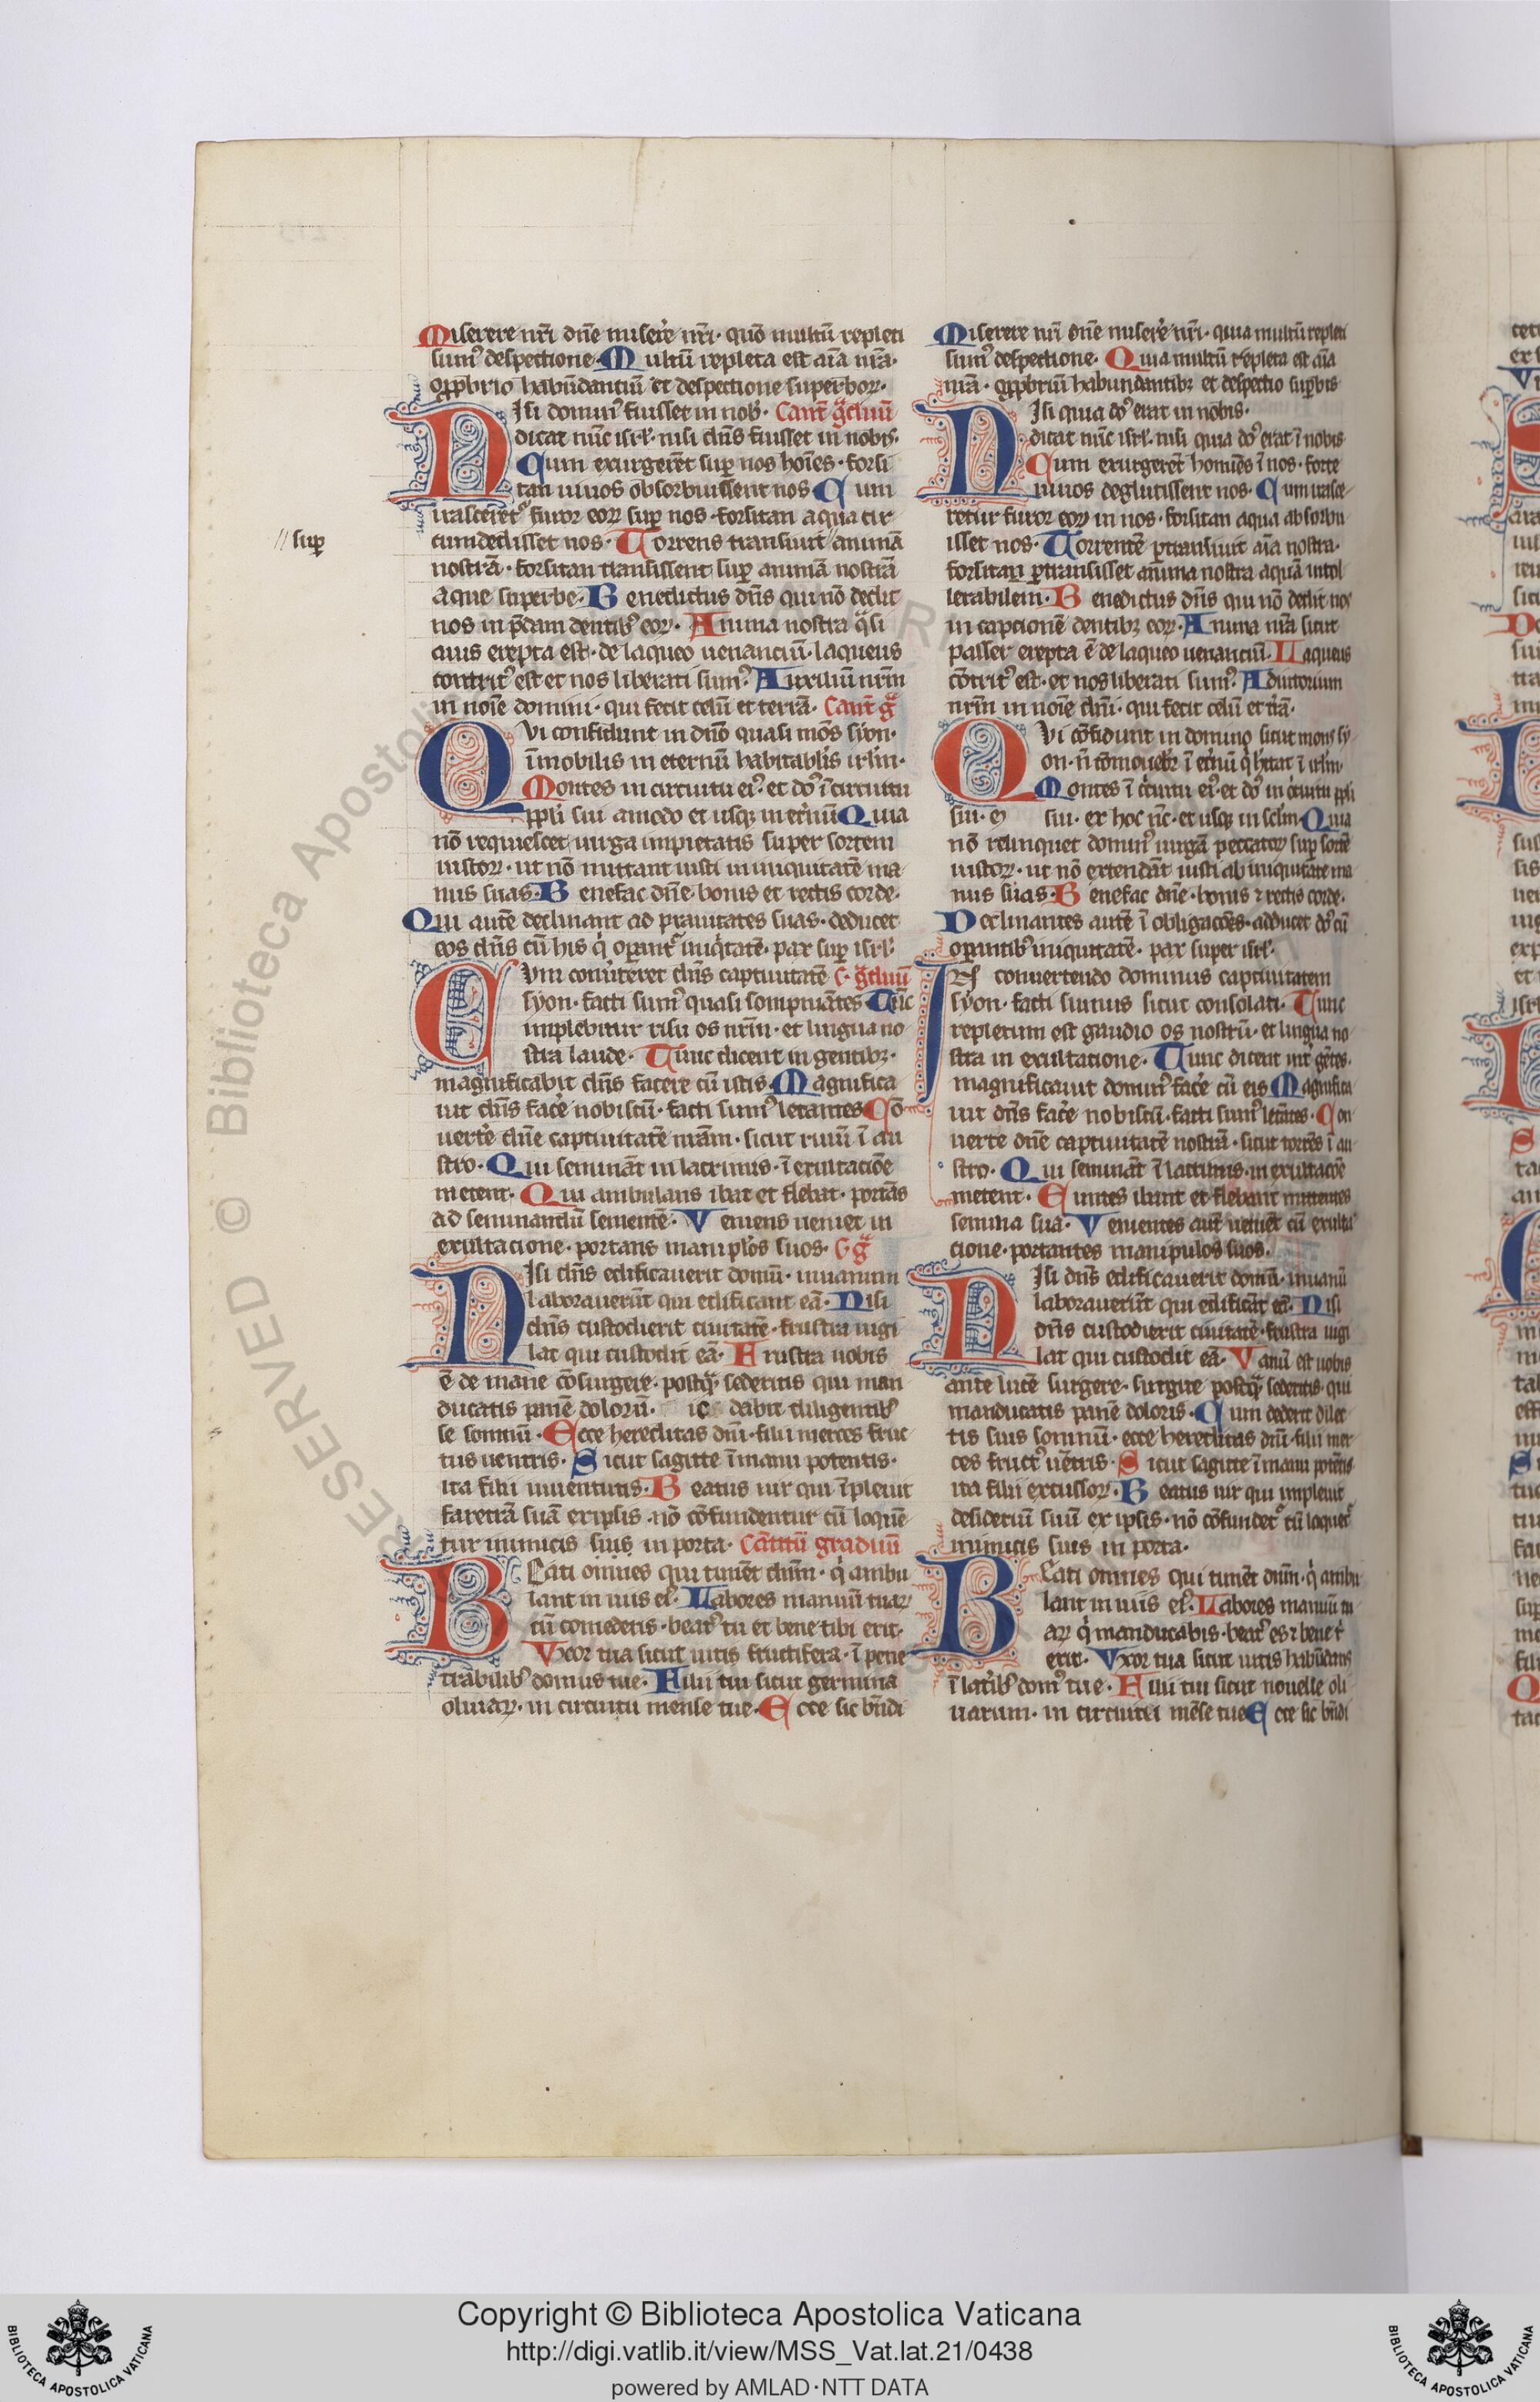 Miserere nr̃i dñe miserẽ nr̃i· quõ multũ repleti
sumꝰ despectione· Multũ repleta est aĩa nr̃a·
opp̃brio habũdantiũ et despectione superboꝝ·
Nisi dominꝰ fuisset in nobˀ· Cant̃ g̃duũ
dicat nũc isrl̃· nisi dñs fuisset in nobis·
Cum exurgerẽt sup̃ nos hoĩes· forsi
tan uiuos obsorbuissent nos Cum
irascerẽtˀ furor eoꝝ sup̃ nos· forsitan aqua cir
cumdedisset nos· Torrens transiuit // animã
// sup̃
nostrã· forsitan transissent sup̃ animã nostrã
aque superbe· Benedictus dñs qui nõ dedit
nos in p̃dam dentibꝰ eoꝝ· Anima nostra q̃si
auis erepta est· de laqueo uenanciũ· laqueus
contritꝰ est et nos liberati sumꝰ· Auxiliũ nr̃m
in noĩe domini· qui fecit celũ et terrã· Cant̃ g̃
Qvi confidunt in dño quasi mõs syon·
ĩmobilis in eternũ habitabl̃is irl̃m·
Montes in circuitu eiꝰ· et dõˀ ĩ circuitu
pp̃li sui amodo et usqꝫ in et̃nũ Quia
nõ requiescet uirga impietatis super sortem
iustoꝝ· ut nõ mittant iusti in iniquitatẽ ma
nus suas· Benefac dñe· bonis et rectis corde·
Qui autẽ declinant ad prauitates suas· deducet
eos dñs cũ his q̇ operantˀ iniq̇tatẽ· pax sup̃ isrl̃·
Cvm conũteret dñs captiuitatẽ C· g̃duũ
syon· facti sumꝰ quasi sompniãtes Tũc
implebitur risu os nr̃m· et lingua no
stra laude· Tunc dicent in gentibꝫ·
magnificabit dñs facere cũ istis Magnifica
uit dñs fac̃e nobiscũ· facti sumꝰ letantes Cõ
uert̃e dñe captiuitatẽ nr̃am· sicut riuũ ĩ au
stro· Qui seminãt in lacrimis· ĩ exultaciõe
metent· Qui ambulans ibat et flebat· portãs
ad seminandũ sementẽ· Veniens ueniet in
exultacione· portans manipl̃os suos· C· g̃
Nisi dñs edificauerit domũ· inuanum
laborauerũt qui edificant eã· Nisi
dñs custodierit ciuitatẽ· frustra uigi
lat qui custodit eã· Frustra uobis
ẽ de mane cõsurgere· postq̃ sederitis qui man
ducatis panẽ dolorũ· ic dabit diligentibꝰ
se somnũ· Ecce hereditas dñi· filii merces fruc
tus uentris· Sicut sagitte ĩ manu potentis·
ita filii iuuentutis· Beatus uir qui ĩpleuit
faretrã suã ex ip̃sis· nõ cõfundentur cũ loquẽ
tur inimicis suis in porta· Cãticũ graduũ
Beati omnes qui timẽt dñm· q̇ ambu
lant in uiis eiꝰ· Labores manuũ tuaꝝ
cũ comederis· beatꝰ tu et bene tibi erit·
Vxor tua sicut uitis fructifera· ĩ pene
trabilibꝰ domus tue· Filii tui sicut germina
oliuaꝝ· in circuitu mense tue· Ecce sic bñdi
Miserere nr̃i dñe miserẽ nr̃i· quia multũ repleti
sumꝰ despectione· Quia multũ repleta est aĩa
nr̃a· opp̃briũ habundantibꝫ et despectio sup̃bis
Nisi quia dõˀ erat in nobis·
dicat nũc isrl̃· nisi quia dõˀ erat ĩ nobis
Cum exurgerẽt homiẽs ĩ nos· forte
uiuos deglutissent nos· Cum irasce
retur furor eoꝝ in nos· forsitan aqua absorbu
isset nos· Torrentẽ p̃transiuit aĩa nostra·
forsitan p̃transisset anima nostra aquã intol
lerabilem· Benedictus dñs qui nõ dedit nos
in captionẽ dentibꝫ eoꝝ· Anima nr̃a sicut
passer erepta ẽ de laqueo uenanciũ· Laqueus
cõtritꝰ est· et nos liberati sumꝰ· Adiutorium
nr̃m in noĩe dñi· qui fecit celũ et t̃rã·
Qvi cõfidunt in domino sicut mons sy
on· ñ cõmouebˀ ĩ et̃nũ q̇ hĩtat ĩ irl̃m·
Montes ĩ c̃cuitu eiꝰ et dõˀ in c̃cuitu pp̃li
sui· ex sui· ex hoc nũc· et usqꝫ in scl̃m· Quia
nõ relinquet dominꝰ uirgã peccatoꝝ sup̃ sortẽ
iustoꝝ· ut nõ extendãt iusti ab iniquitatẽ ma
nus suas· Benefac dñe· bonis ⁊ rectis corde·
Declinantes autẽ ĩ obligaciões· adducet dõˀ cũ
operantibꝰ iniquitatẽ· pax super isrl̃·
In convertendo dominus captiuitatem
syon· facti sumus sicut consolati· Tunc
repletum est gaudio os nostrũ· et lingua no
stra in exultatione· Tunc dicent int̃ gẽtes·
magnificauit dominꝰ fac̃e cũ eis Magnifica
uit dñs fac̃e nobiscũ· facti sumꝰ letãtes· Con
uerte dñe captiuitatẽ nostrã· sicut torrẽs ĩ au
stro· Qui seminãt ĩ lacrimis· in exultaciõe
metent· Euntes ibant et flebant mittentes
semina sua· Venientes aut̃ ueniẽt cũ exulta
cione· portantes manipulos suos·
Nisi dñs edificauerit domũ· inuanũ
laborauerũt qui edificãt eã· Nisi
dñs custodierit ciuitatẽ· frustra uigi
lat qui custodit eã· Vanũ est uobis
ante lucẽ surgere· surgite postq̃ sederitis· qui
manducatis panẽ doloris· Cum dederit dilec
tis suis somnũ· ecce hereditas dñi· filii mer
ces fructꝰ uẽtris· Sicut sagitte ĩ manu potẽtis
ita filii excussoꝝ· Beatus uir qui impleuit
desideriũ suũ ex ipsis· nõ cõfundetˀ cũ loquetˀ
inimicis suis in porta·
Beati omnes qui timẽt dñm· q̇ ambu
lant in uiis eiꝰ· Labores manuũ tu
aꝝ q̇ manducabis· beatꝰ es ⁊ bene t̃
erit· Vxor tua sicut uitis habũdans
ĩ lat̃ibꝰ domꝰ tue· Filii tui sicut nouelle oli
uarum· in circuitu mẽse tue Ecce sic bñdi
RESERVED © Biblioteca Apostolica
Copyright © Biblioteca Apostolica Vaticana
http://digi.vatlib.it/view/MSS_Vat.lat.21/0438
powered by AMLAD·NTT DATA
BIBLIOTECA APOSTOLICA VATICANA
BIBLIOTECA APOSTOLICA VATICANA